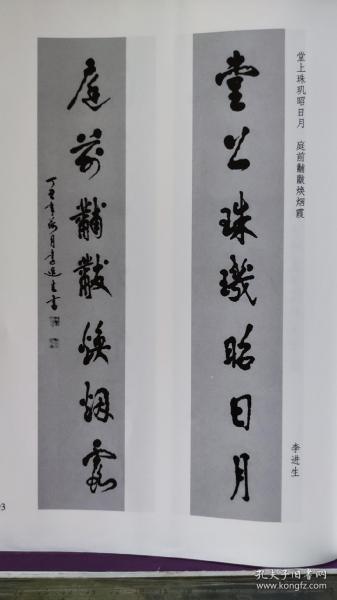 堂上珠玑昭日月　庭前黼黻焕烟霞
李进生
堂上珠璣昭日月
庭前黼黻煥烟霞
丁丑年月李進生書
孔夫子旧书网
www.kongfz.com